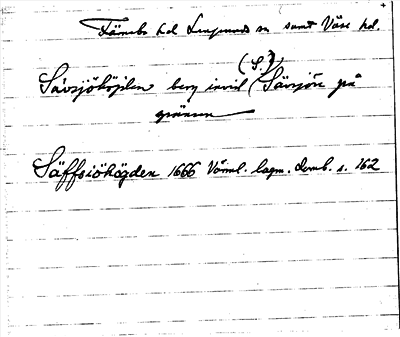 Färnebo hd Lungsunds sn samt Väse hd.
(S.?)
Sävsjöhöjden berg invid (Sävsjön på
gränsen
Säffsiöhögden 1666 Värml. lagm. domb. s. 162